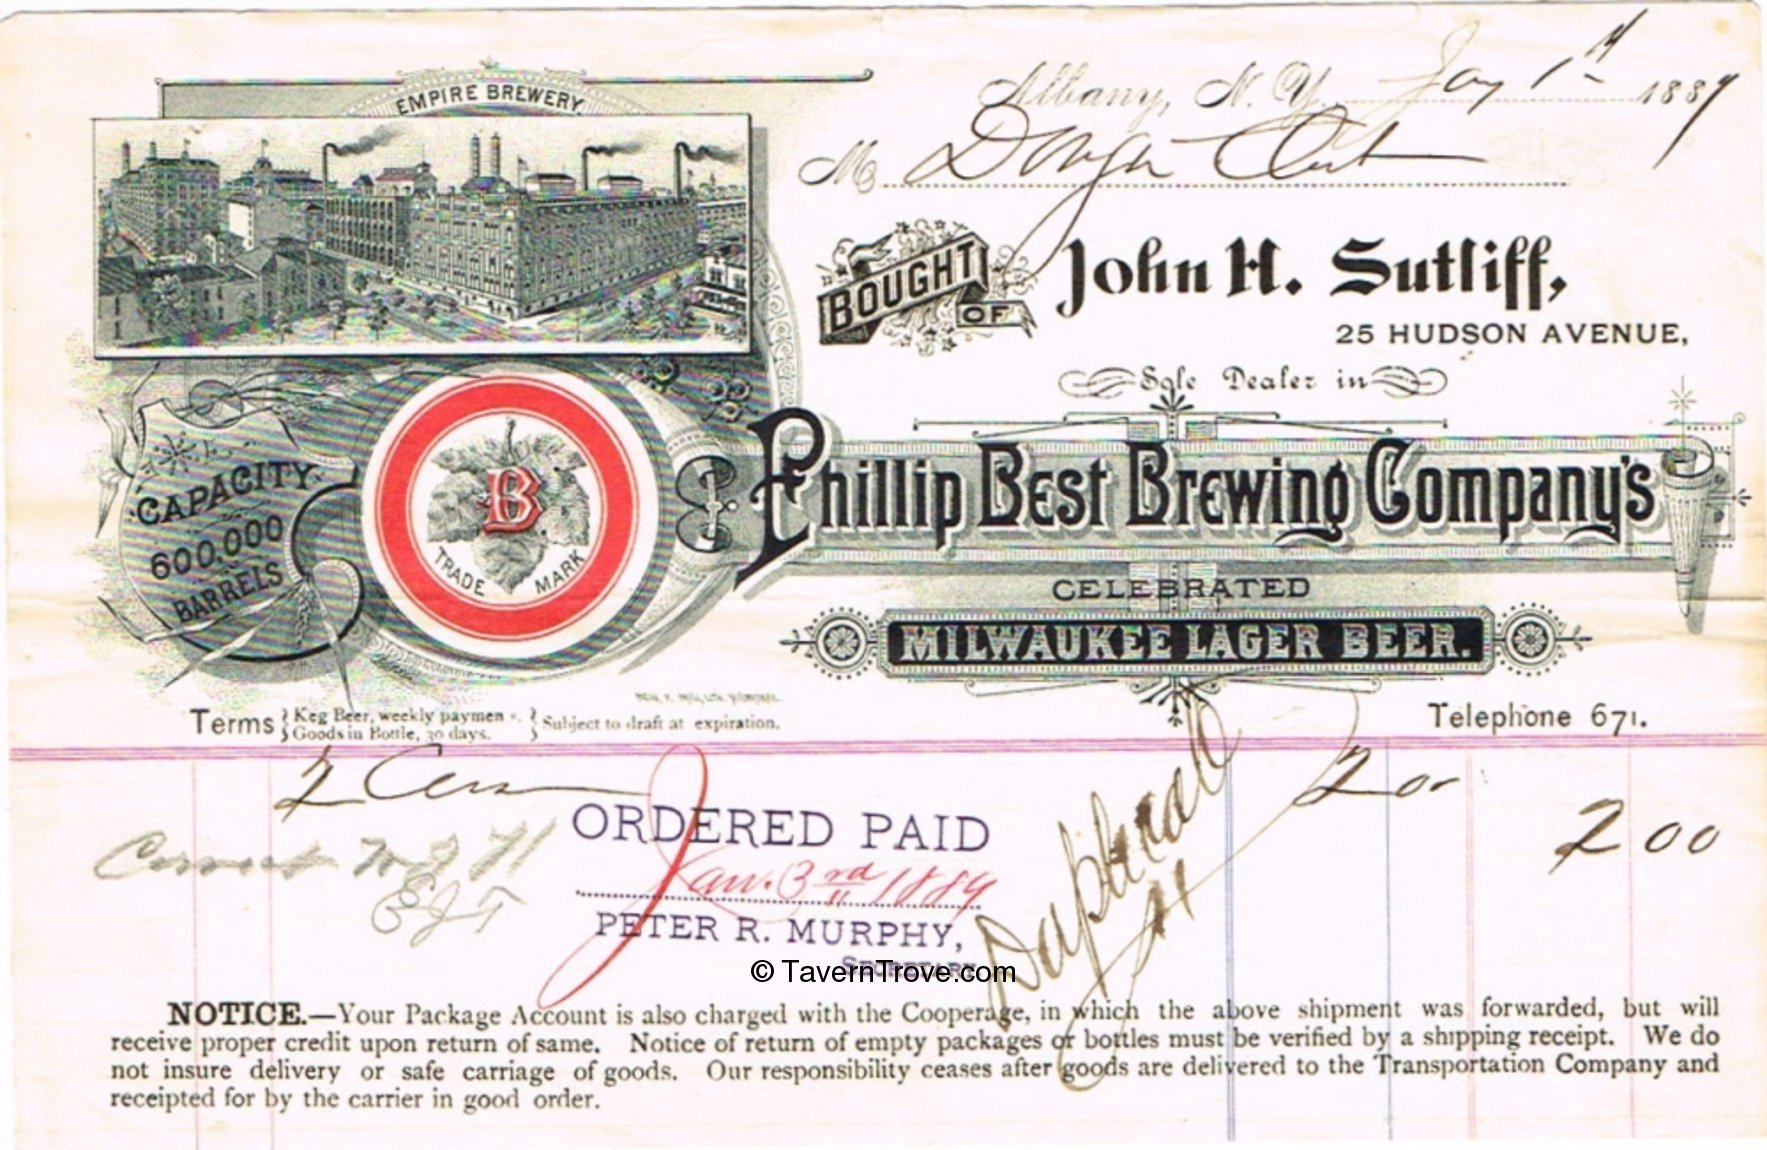 EMPIRE BREWERY.
Albany, N. Y. Jany 1st 1889
M
BOUGHT OF
John H. Sutliff,
25 HUDSON AVENUE,
Sole Dealer in
Phillip Best Brewing Company's
CAPACITY
600,000
BARRELS
B
TRADE MARK
CELEBRATED
MILWAUKEE LAGER BEER.
Terms { Keg Beer, weekly paymen s. } Subject to draft at expiration.
Goods in Bottle, 30 days.
Telephone 671.
2
2 00
ORDERED PAID
Jan. 3rd 1889
PETER R. MURPHY,
SECRETARY
2 00
© TavernTrove.com
NOTICE.—Your Package Account is also charged with the Cooperage, in which the above shipment was forwarded, but will
receive proper credit upon return of same. Notice of return of empty packages or bottles must be verified by a shipping receipt. We do
not insure delivery or safe carriage of goods. Our responsibility ceases after goods are delivered to the Transportation Company and
receipted for by the carrier in good order.